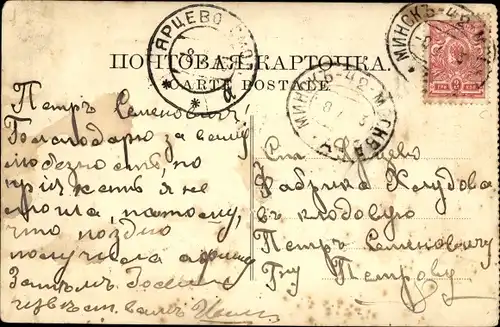 ПОЧТОВАЯ КАРТОЧКА.
CARTE POSTALE
ЯРЦЕВО
МИНСКЪ-42-МОСКВА
МИНСКЪ-42-М
Петръ Семеновичъ,
Благодарю за вашу
любезность, но
пріѣхать я не
могла, потому,
что поздно
получила
Затѣмъ
извѣст. вамъ
Ст. Ярцево
Фабрика Хлудова
въ кладовую
Петру Семеновичу
Гну Петрову